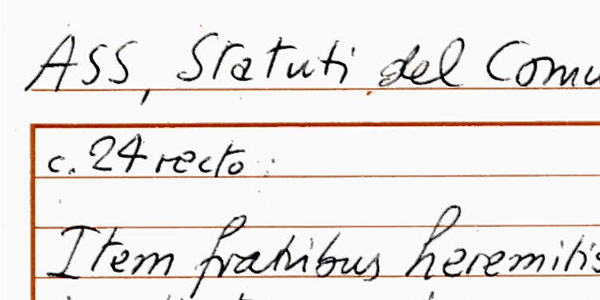 ASS, Statuti del Comu
c. 24 recto:
Item fratribus heremitis